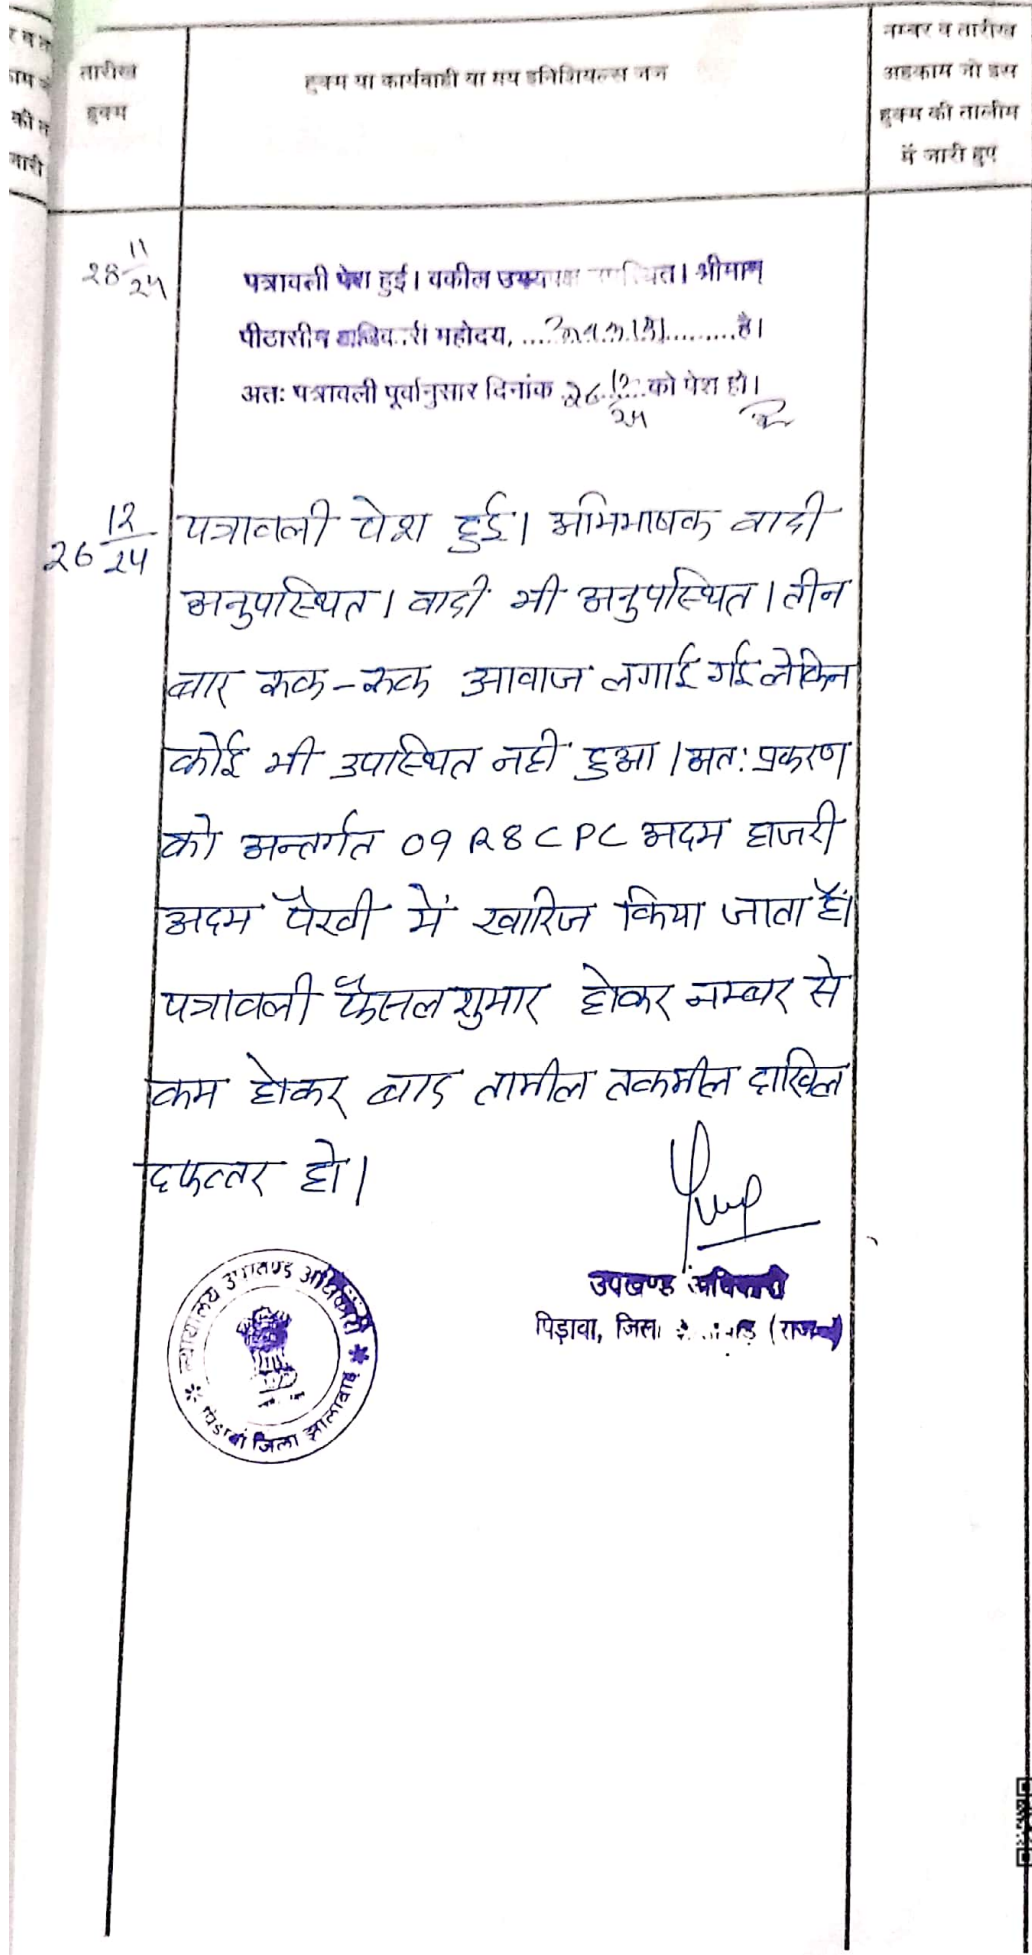 तारीख
हुक्म
हुक्म या कार्यवाही या मय इनिशियल्स जज
नम्बर व तारीख
अहकाम जो इस
हुक्म की तालीम
में जारी हुए
28 11/24
पत्रावली पेश हुई। वकील उभयपक्ष श्रीमान्
पीठासीन महोदय, है।
अतः पत्रावली पूर्वानुसार दिनांक 26 12/24 को पेश हो।
26 12/24
पत्रावली पेश हुई। अभिभाषक वादी
अनुपस्थित। वादी भी अनुपस्थित। तीन
बार रूक-रूक आवाज लगाई गई लेकिन
कोई भी उपस्थित नही हुआ। अतः प्रकरण
को अन्तर्गत 09 R8 CPC अदम हाजरी
अदम पैरवी में खारिज किया जाता है।
पत्रावली फैसल शुमार होकर नम्बर से
कम होकर बाद तामील तकमील दाखिल
दफ्तर हो।
उपखण्ड अधिकारी
पिड़ावा, जिला (राज०)
न्यायालय उपखण्ड अधिकारी
पिड़ावा जिला झालावाड़